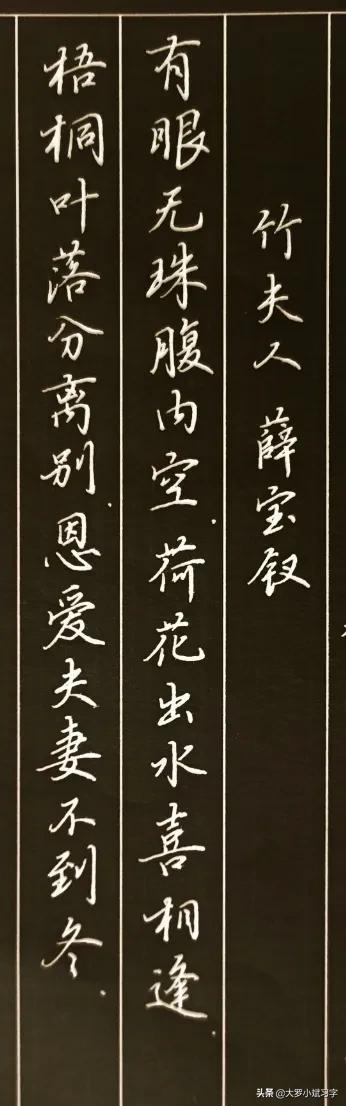 竹夫人 薛宝钗
有眼无珠腹内空.荷花出水喜相逢.
梧桐叶落分离别.恩爱夫妻不到冬.
头条 @大罗小斌习字